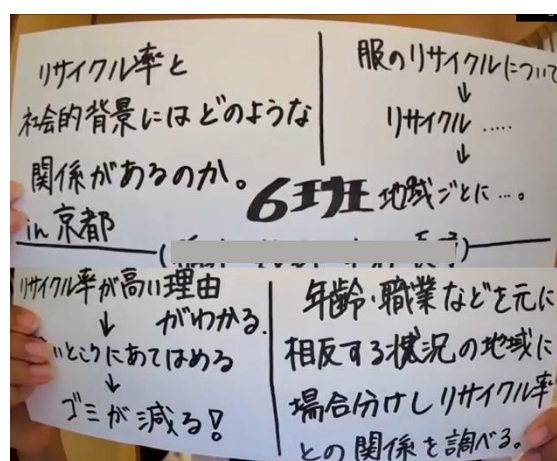 リサイクル率と
社会的背景にはどのような
関係があるのか。
in 京都
服のリサイクルについて
↓
リサイクル .....
↓
地域ごとに…。
6班
リサイクル率が高い理由
がわかる.
↓
いところにあてはめる
↓
ゴミが減る!
年齢・職業などを元に
相反する状況の地域に
場合分けしリサイクル率
との関係を調べる。